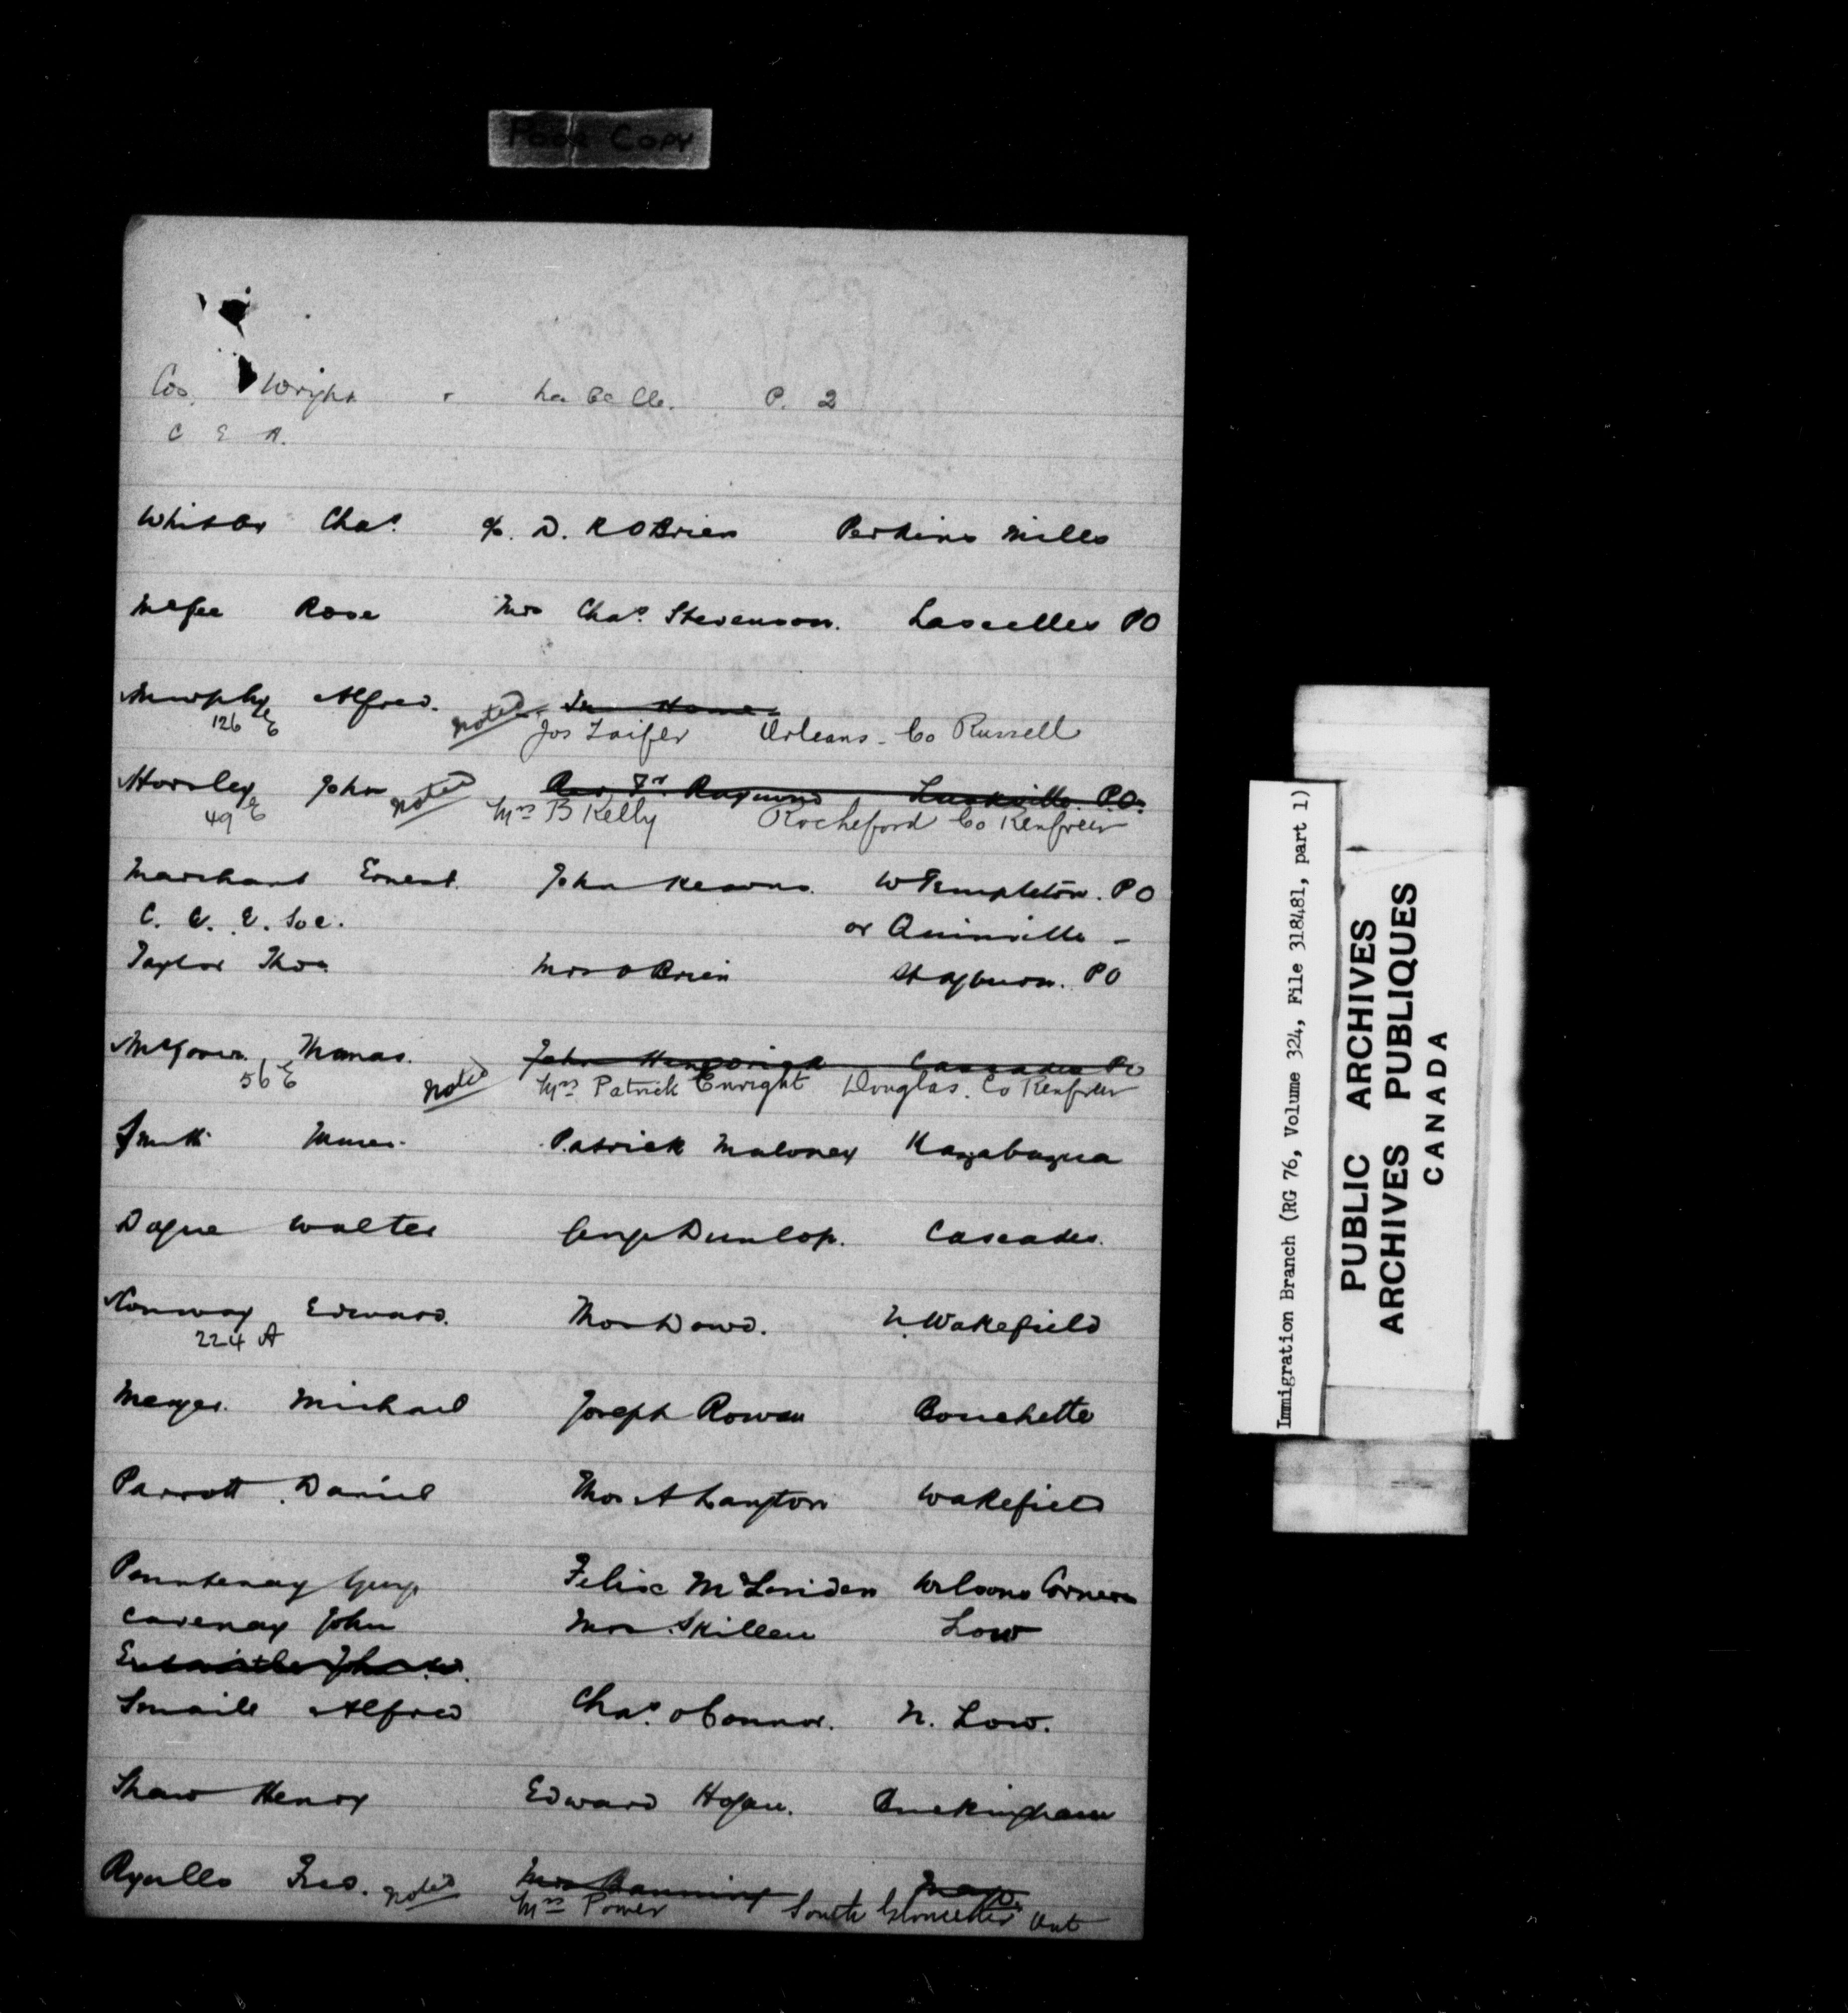 Poor Copy
Cos. Wright & La Belle. P. 2
C E A.
Whitby Chas. c/o. D. R OBrien Perkins Mills
McGee Rose Mrs Chas. Stevenson. Lascelles PO
Murphy Alfred. noted In Home
126 E Jos Laifer Orleans - Co Russell
Horsley John noted Rev. Fr. Raymond Luskville. P.O.
49 E Mrs B Kelly Rocheford Co Renfrew
Marchant Ernest. John Kearns. W Templeton. PO
C. C. E. Soc. or Quinville -
Taylor Thos. Mrs OBrien PO
McGovern. Thomas. noted John Cascades PO
56 E Mrs Patrick Enright Douglas. Co Renfrew
Smith James. Patrick Maloney Kazabazua
Dague Walter George Dunlop. Cascades.
Conway Edward. Thos Dowd. N. Wakefield
224 A
Michael Joseph Rowan Bouchette
Parrott. Daniel Thos A Langton Wakefield
Pountenay George Felix Wilsons Corners
Cavenay John Mrs. Skillen Low
Entwistle John W.
Smaile Alfred Chas. OConnor. N. Low.
Shaw Henry Edward Hogan. Buckingham
Ryalls Fred. noted Mrs Banning
Mrs Power South Gloucester Ont
Immigration Branch (RG 76, Volume 324, File 318481, part 1)
PUBLIC ARCHIVES
ARCHIVES PUBLIQUES
CANADA